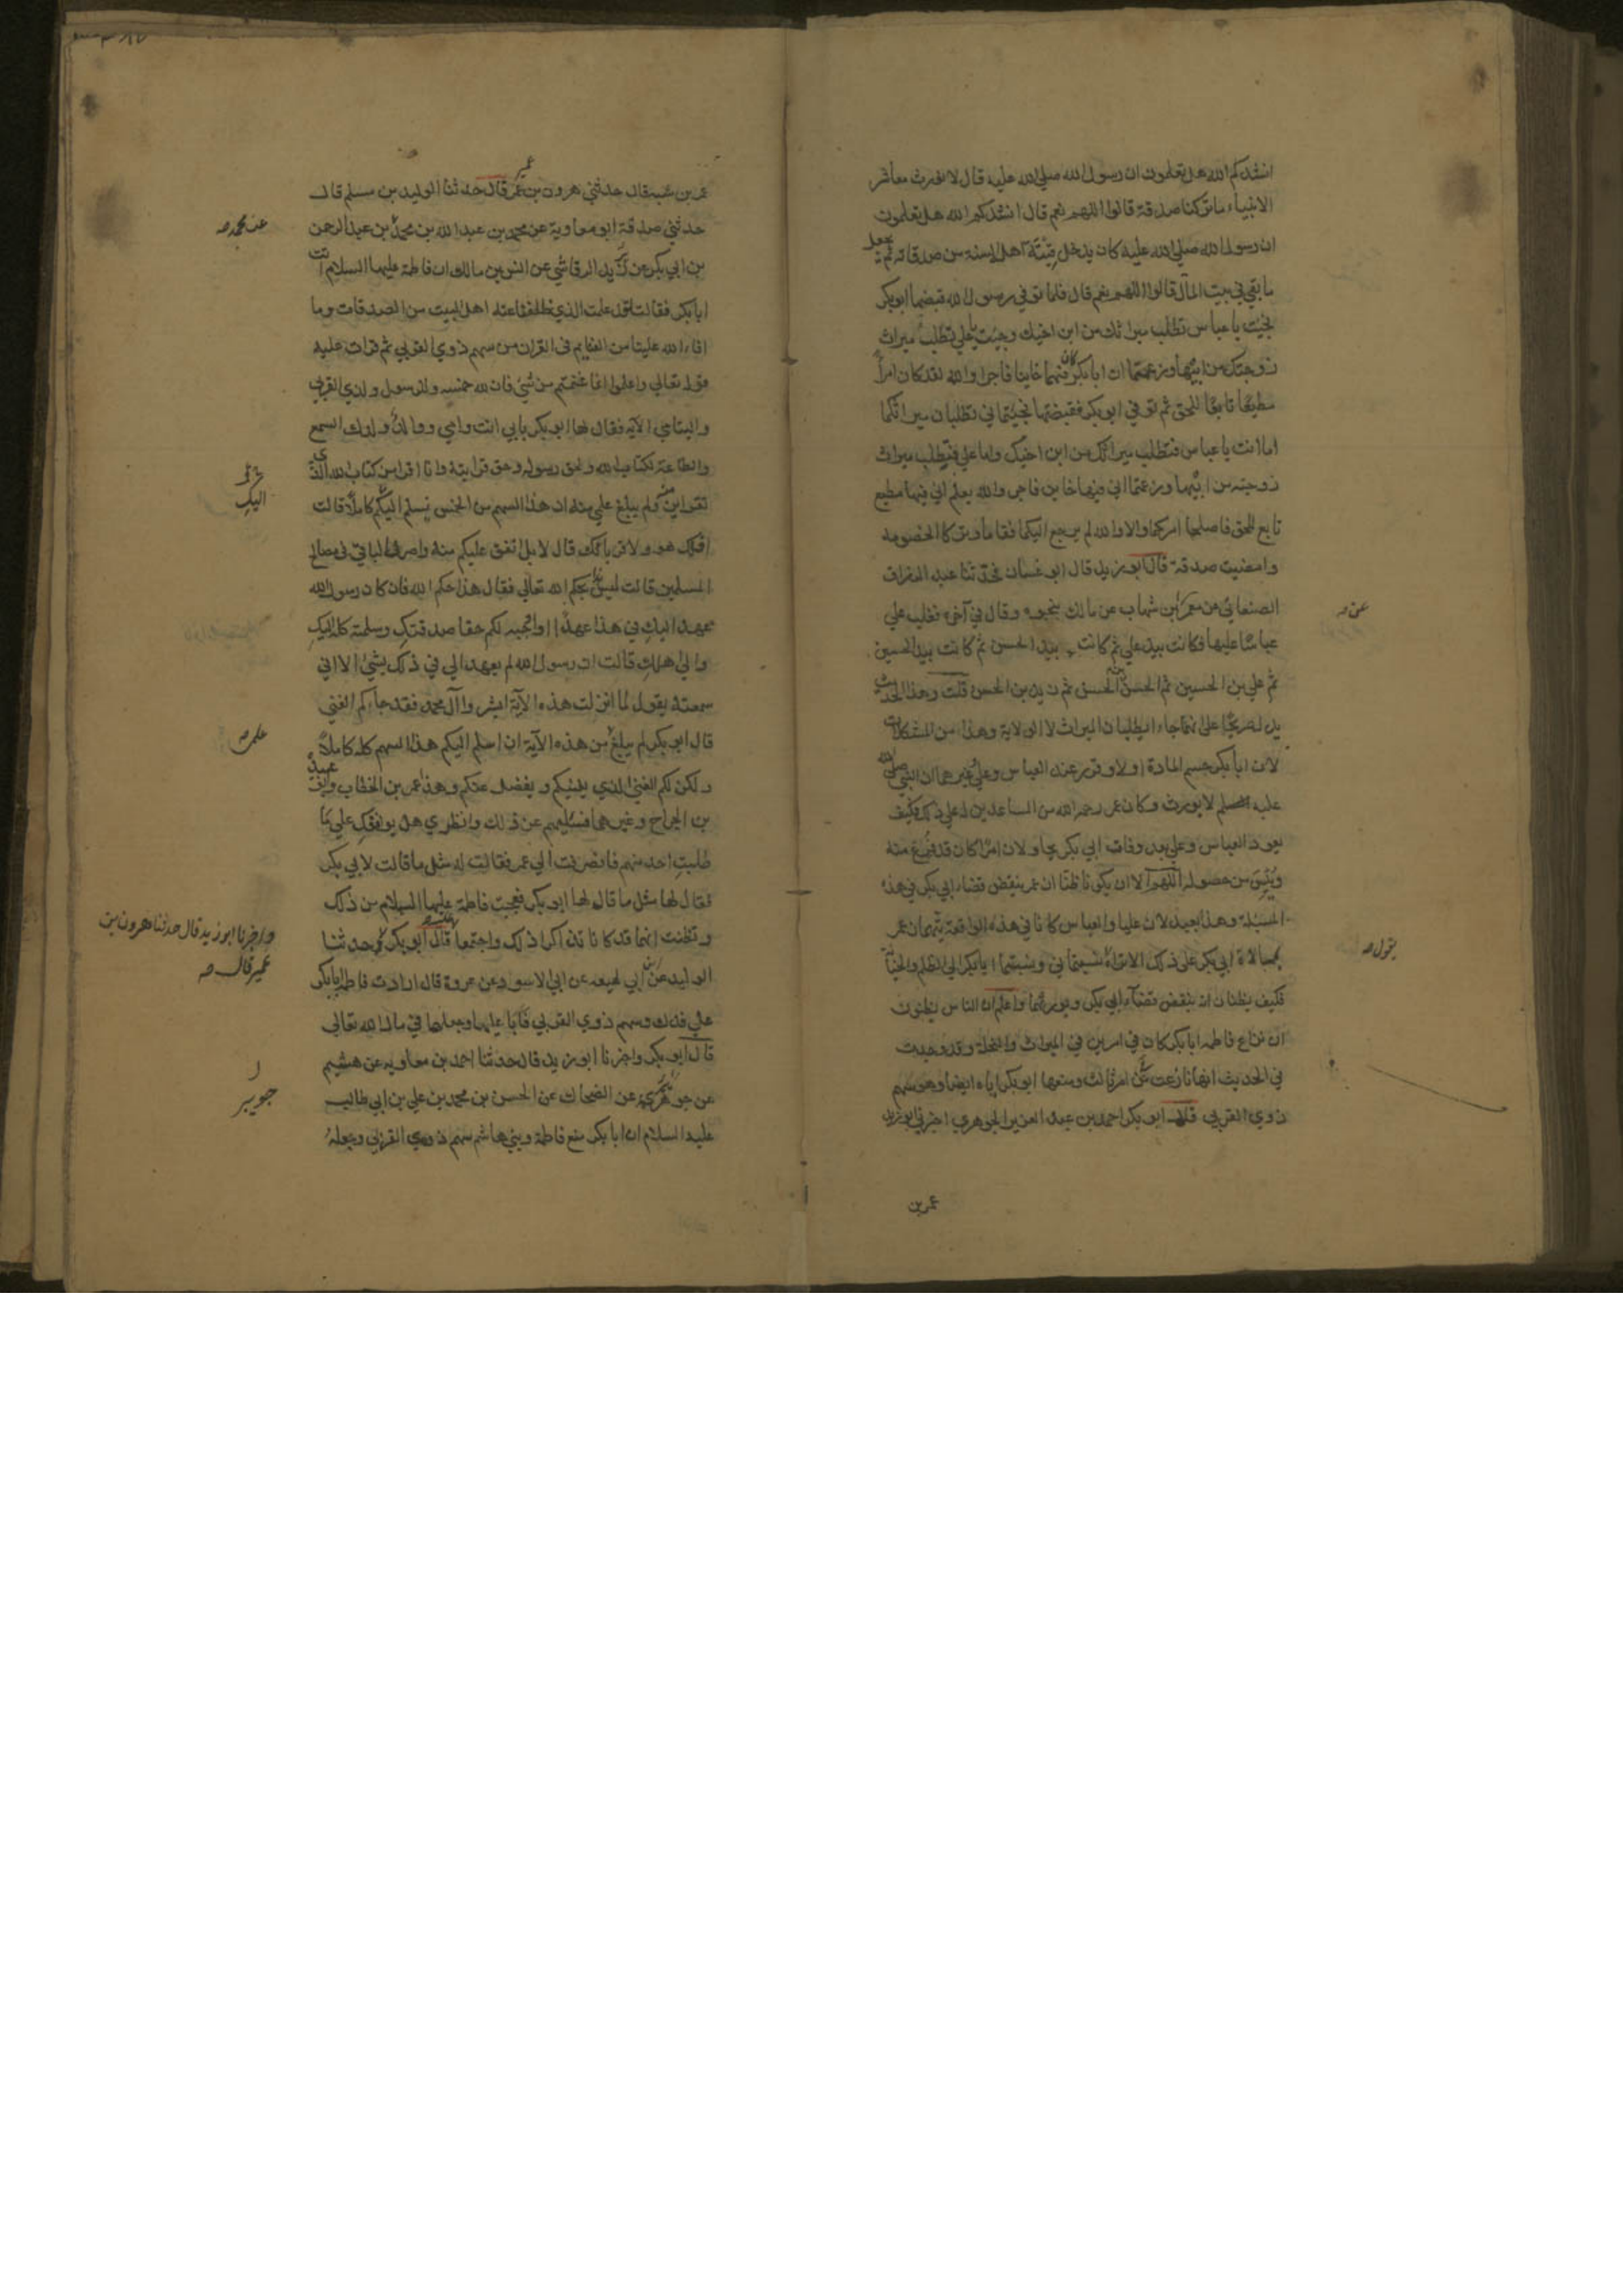 انشدكم الله هل تعلمون ان رسول الله صلى الله عليه قال لا نورث معاشر
الانبياء ما تركنا صدقة قالوا اللهم نعم قال انشدكم الله هل تعلمون
ان رسول الله صلى الله عليه كان يدخل فيئه اهله السنة من صدقاته ثم يجعل
ما بقي في بيت المال قالوا اللهم نعم قال فلما توفي رسول الله قبضها ابو بكر
فجئت يا عباس تطلب ميراثك من ابن اخيك وجئت يا علي تطلب ميراث
زوجتك من ابيها وزعمتما ان ابا بكر كان فيها خاينا فاجرا والله لقد كان امرأ
مطيعًا تابعًا للحق ثم توفي ابو بكر فقبضتها فجئتماني تطلبان ميراثكما
اما انت يا عباس فتطلب ميراثك من ابن اخيك واما علي فيطلب ميراث
زوجته من ابيها وزعمتما اني فيها خاين فاجر والله يعلم اني فيها مطيع
تابع للحق فاصلحا امركما والا والله لم يرجع اليكما فقاما وتركا الخصومه
وامضيت صدقة قال ابو زيد قال ابو غسان فحدثنا عبد الرزاق
الصنعاني عن معمر بن شهاب عن مالك بنحوه وقال في آخره فغلب علي
عن صه
عباسًا عليها فكانت بيد علي ثم كانت بيد الحسن ثم كانت بيد الحسين
ثم علي بن الحسين ثم الحسن بن الحسن ثم زيد بن الحسن قلت وهذا الحديث
يدل صريحًا على انهما جاءا يطلبان الميراث لا الولاية وهذا من المشكلات
لان ابا بكر حسم المادة اولا وقرر عند العباس وعلي وغيرهما ان النبي صلى الله
عليه وسلم لا يورث وكان عمر رحمه الله من المساعدين له على ذلك فكيف
يعود العباس وعلي بعد وفات ابي بكر يحاولان امرًا كان قد فرغ منه
ويئس من حصوله اللهم الا ان يكونا ظنا ان عمر ينقض قضاء ابي بكر في هذه
المسئلة وهذا بعيد لان عليا والعباس كانا في هذه الواقعة يتهمان عمر
بممالاة ابي بكر على ذلك الا تراه نسبتماني ونسبتما ابا بكر الى الظلم والخيانة
يقول صه
فكيف يظنان انه ينقض قضاء ابي بكر ويورثهما واعلم ان الناس يظنون
ان نزاع فاطمه ابا بكر كان في امرين في الميراث والنحلة وقد وجدت
في الحديث انها نازعت في امر ثالث ومنعها ابو بكر اياه ايضا وهو سهم
ذوي القربى قال ابو بكر احمد بن عبد العزيز الجوهري اخبرني ابو زيد
عمر بن
عمر بن شبه قال حدثني هرون بن عمير قال حدثنا الوليد بن مسلم قال
حدثني صدقة ابو معاوية عن محمد بن عبد الله بن محمد بن عبد الرحمن
عن محمد صه
بن ابي بكر عن يزيد الرقاشي عن انس بن مالك ان فاطمة عليها السلام اتت
ابا بكر فقالت لقد علمت الذي ظلمتنا عنه اهل البيت من الصدقات وما
افاء الله علينا من الغنايم في القران من سهم ذوي القربى ثم قرات عليه
قوله تعالى واعلموا انما غنمتم من شيء فان لله خمسه وللرسول ولذي القربى
واليتامى الآية فقال لها ابو بكر بابي انت وامي ووالد ولدك السمع
والطاعة لكتاب الله ولحق رسوله وحق قرابته وانا اقرا من كتاب الله الذي
تقراين منه ولم يبلغ علمي منه ان هذا السهم من الخمس يسلم اليكم كاملا قالت
اليك
افلك هو ولاقربائك قال لا بل انفق عليكم منه واصرف الباقي في مصالح
المسلمين قالت ليس هذا بحكم الله تعالى فقال هذا حكم الله فان كان رسول الله
عهد اليك في هذا عهدًا او اوجبه لكم حقا صدقتك وسلمته كله اليك
والى اهلك قالت ان رسول الله لم يعهد الي في ذلك بشيء الا اني
سمعته يقول لما انزلت هذه الآية ابشروا آل محمد فقد جاءكم الغنى
قال ابو بكر لم يبلغ من هذه الآية ان اسلم اليكم هذا السهم كله كاملاً
علمي صه
ولكن لكم الغنى الذي يغنيكم ويفضل عنكم وهذا عمر بن الخطاب وابو عبيدة
بن الجراح وغيرهما فسئليهم عن ذلك وانظري هل يوافقك على ما
طلبت احد منهم فانصرفت الى عمر فقالت له مثل ما قالت لابي بكر
فقال لها مثل ما قال لها ابو بكر فعجبت فاطمة عليها السلام من ذلك
وتظنت انهما قد كانا تذاكرا ذلك واجتمعا عليه قال ابو بكر حدثنا
واخبرنا ابو زيد قال حدثنا هرون بن
عمير قال صه
الوليد عن ابن ابي لهيعه عن ابي الاسود عن عروة قال ارادت فاطمة ابا بكر
على فدك وسهم ذوي القربى فابا عليها وجعلها في مال الله تعالى
قال ابو بكر واخبرنا ابو زيد قال حدثنا احمد بن معاويه عن هشيم
عن جويبر عن الضحاك عن الحسن بن محمد بن علي بن ابي طالب
جويبر
عليه السلام ان ابا بكر منع فاطمة وبني هاشم سهم ذوي القربى وجعله